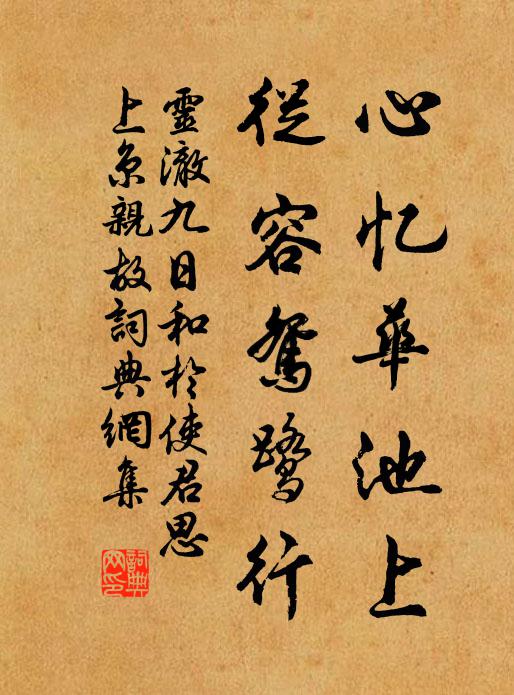 心忆華池上
從容鴛鷺行
靈澈九日和於使君思
上京親故詞典網集
詞典
网印